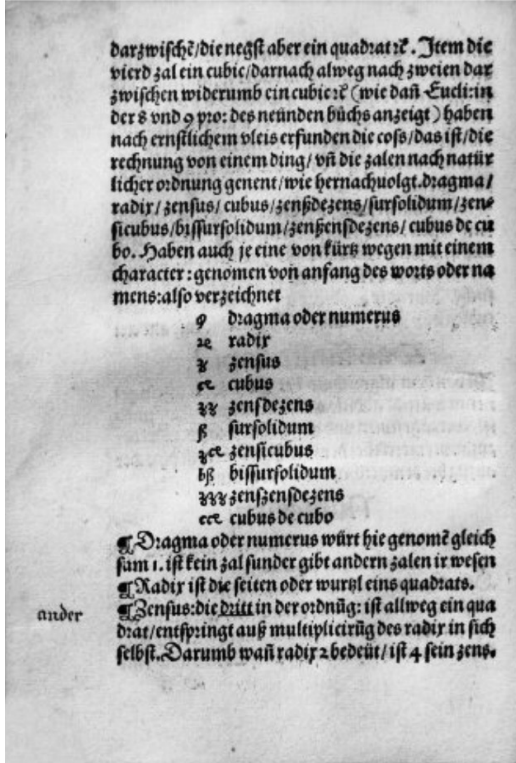 darzwischē/die negst aber ein quadrat ꝛc̄. Item die
vierd zal ein cubic/darnach alweg nach zweien dar
zwischen widerumb ein cubic ꝛc̄ (wie dañ Eucli:in
der 8 vnd 9 pro: des neünden bůchs anzeigt) haben
nach ernstlichem vleis erfunden die coss/das ist/die
rechnung von einem ding/vñ die zalen nach natür
licher ordnung genent/wie hernachuolgt.dragma/
radix/zensus/cubus/zenßdezens/sursolidum/zen-
sicubus/bissursolidum/zenßensdezens/cubus de cu
bo. Haben auch je eine von kürtz wegen mit einem
character:genomen von anfang des worts oder na
mens:also verzeichnet
dragma oder numerus
radix
zensus
cubus
zensdezens
ß sursolidum
zensicubus
bß bissursolidum
zenszensdezens
cubus de cubo
¶Dragma oder numerus würt hie genomē gleich
sum 1. ist kein zal sunder gibt andern zalen ir wesen
¶Radix ist die seiten oder wurtzl eins quadrats.
ander ¶Zensus:die dritt in der ordnūg: ist allweg ein qua
drat/entspringt auß multiplicirūg des radix in sich
selbst.Darumb wañ radix 2 bedeüt/ist 4 sein zens.